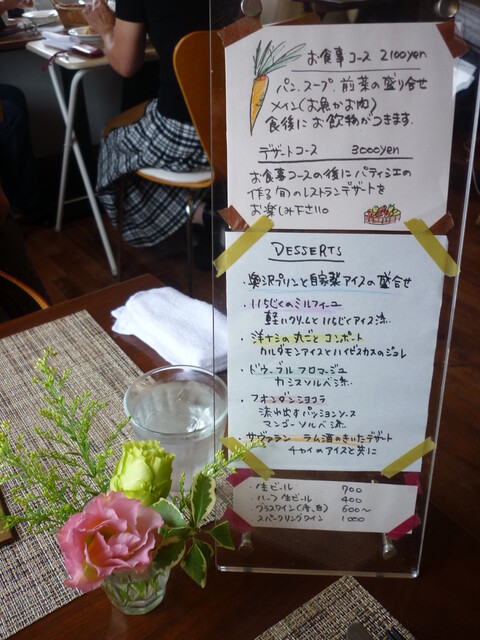 お食事コース 2100yen
パン、スープ、前菜の盛り合せ
メイン(お魚かお肉)
食後にお飲物がつきます。
デザートコース 3000yen
お食事コースの後にパティシエの
作る旬のレストランデザートを
お楽しみ下さい。
DESSERTS
・奥沢プリンと自家製アイスの盛合せ
・いちじくのミルフィーユ
軽いクリームといちじくアイス添え
・洋ナシの丸ごとコンポート
カルダモンアイスとハイビスカスのジュレ
・ドゥーブルフロマージュ
カシスソルベ添え
・フォンダンショコラ
流れ出すパッションソース
マンゴーソルベ添え
・サヴァラン ラム酒のきいたデザート
チャイのアイスと共に
・生ビール 700
・ハーフ生ビール 400
・グラスワイン(赤、白) 600〜
・スパークリングワイン 1000